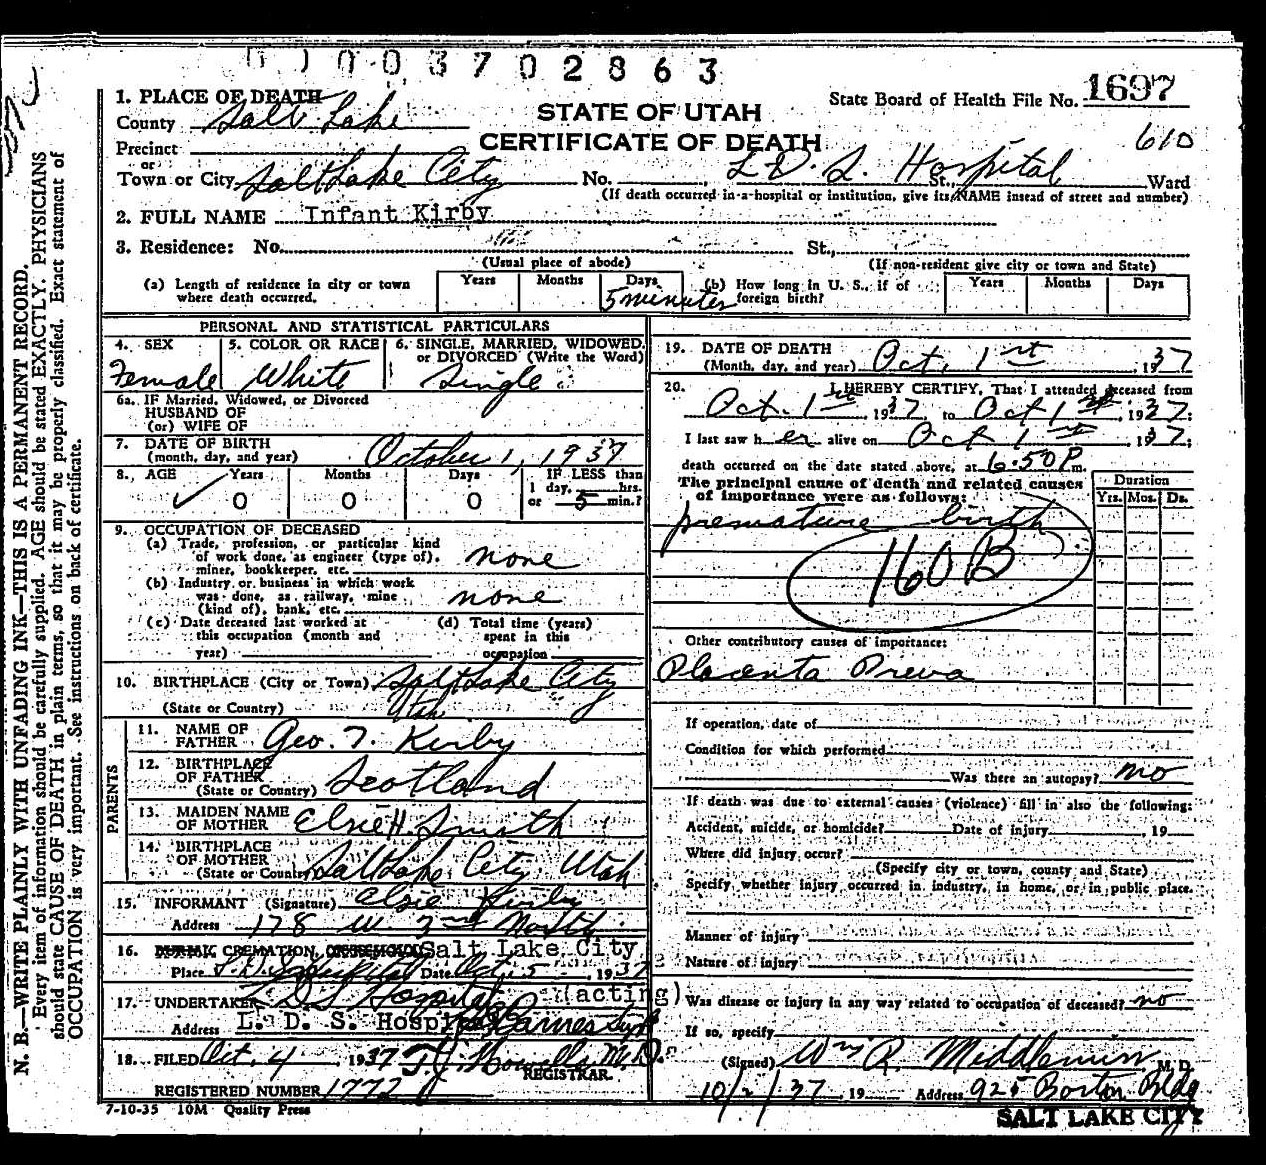 0 1 0 0 3 7 0 2 8 6 3
STATE OF UTAH
CERTIFICATE OF DEATH
State Board of Health File No. 1697
610
1. PLACE OF DEATH
County Salt Lake
Precinct
or
Town or City Salt Lake City No. L. D. S. Hospital St., Ward
(If death occurred in a hospital or institution, give its NAME instead of street and number)
2. FULL NAME Infant Kirby
3. Residence: No. St.,
(Usual place of abode) (If non-resident give city or town and State)
(a) Length of residence in city or town where death occurred. Years Months Days 5 minutes
(b) How long in U. S., if of foreign birth? Years Months Days
PERSONAL AND STATISTICAL PARTICULARS
4. SEX Female
5. COLOR OR RACE White
6. SINGLE, MARRIED, WIDOWED, or DIVORCED (Write the Word) Single
6a. IF Married, Widowed, or Divorced
HUSBAND OF
(or) WIFE OF
7. DATE OF BIRTH
(month, day, and year) October 1, 1937
8. AGE Years 0 Months 0 Days 0 IF LESS than 1 day, hrs. or 5 min.?
9. OCCUPATION OF DECEASED
(a) Trade, profession, or particular kind of work done, as engineer (type of), miner, bookkeeper, etc. none
(b) Industry or business in which work was done, as railway, mine (kind of), bank, etc. none
(c) Date deceased last worked at this occupation (month and year)
(d) Total time (years) spent in this occupation
10. BIRTHPLACE (City or Town) Salt Lake City
(State or Country) Utah
PARENTS
11. NAME OF FATHER Geo. T. Kirby
12. BIRTHPLACE OF FATHER
(State or Country) Scotland
13. MAIDEN NAME OF MOTHER Elsie H. Smith
14. BIRTHPLACE OF MOTHER
(State or Country) Salt Lake City Utah
15. INFORMANT (Signature) Elsie Kirby
Address 178 W 3rd North
16. BURIAL, CREMATION, Salt Lake City
Place L. D. S. Hospital Date Oct. 5 1937
17. UNDERTAKER L D S Hospital (acting)
Address L. D. S. Hospital Barnes Supt
18. FILED Oct. 4 1937 T. J. Howells M. D.
REGISTRAR.
REGISTERED NUMBER 1772
7-10-35 10M Quality Press
19. DATE OF DEATH
(Month, day, and year) Oct. 1st, 1937
20. I HEREBY CERTIFY, That I attended deceased from
Oct. 1st 1937, to Oct 1st 1937;
I last saw her alive on Oct 1st, 1937;
death occurred on the date stated above, at 6:50 P m.
The principal cause of death and related causes of importance were as follows:
Duration
Yrs. Mos. Ds.
premature birth
160B
Other contributory causes of importance:
Placenta Previa
If operation, date of
Condition for which performed
Was there an autopsy? no
If death was due to external causes (violence) fill in also the following:
Accident, suicide, or homicide? Date of injury , 19
Where did injury occur?
(Specify city or town, county and State)
Specify whether injury occurred in industry, in home, or in public place.
Manner of injury
Nature of injury
Was disease or injury in any way related to occupation of deceased? no
If so, specify
(Signed) Wm R. Middlemiss M. D.
10/2/37, 19 Address 925 Boston Bldg
SALT LAKE CITY
N. B.—WRITE PLAINLY WITH UNFADING INK—THIS IS A PERMANENT RECORD.
Every item of information should be carefully supplied. AGE should be stated EXACTLY. PHYSICIANS
should state CAUSE OF DEATH in plain terms, so that it may be properly classified. Exact statement of
OCCUPATION is very important. See instructions on back of certificate.